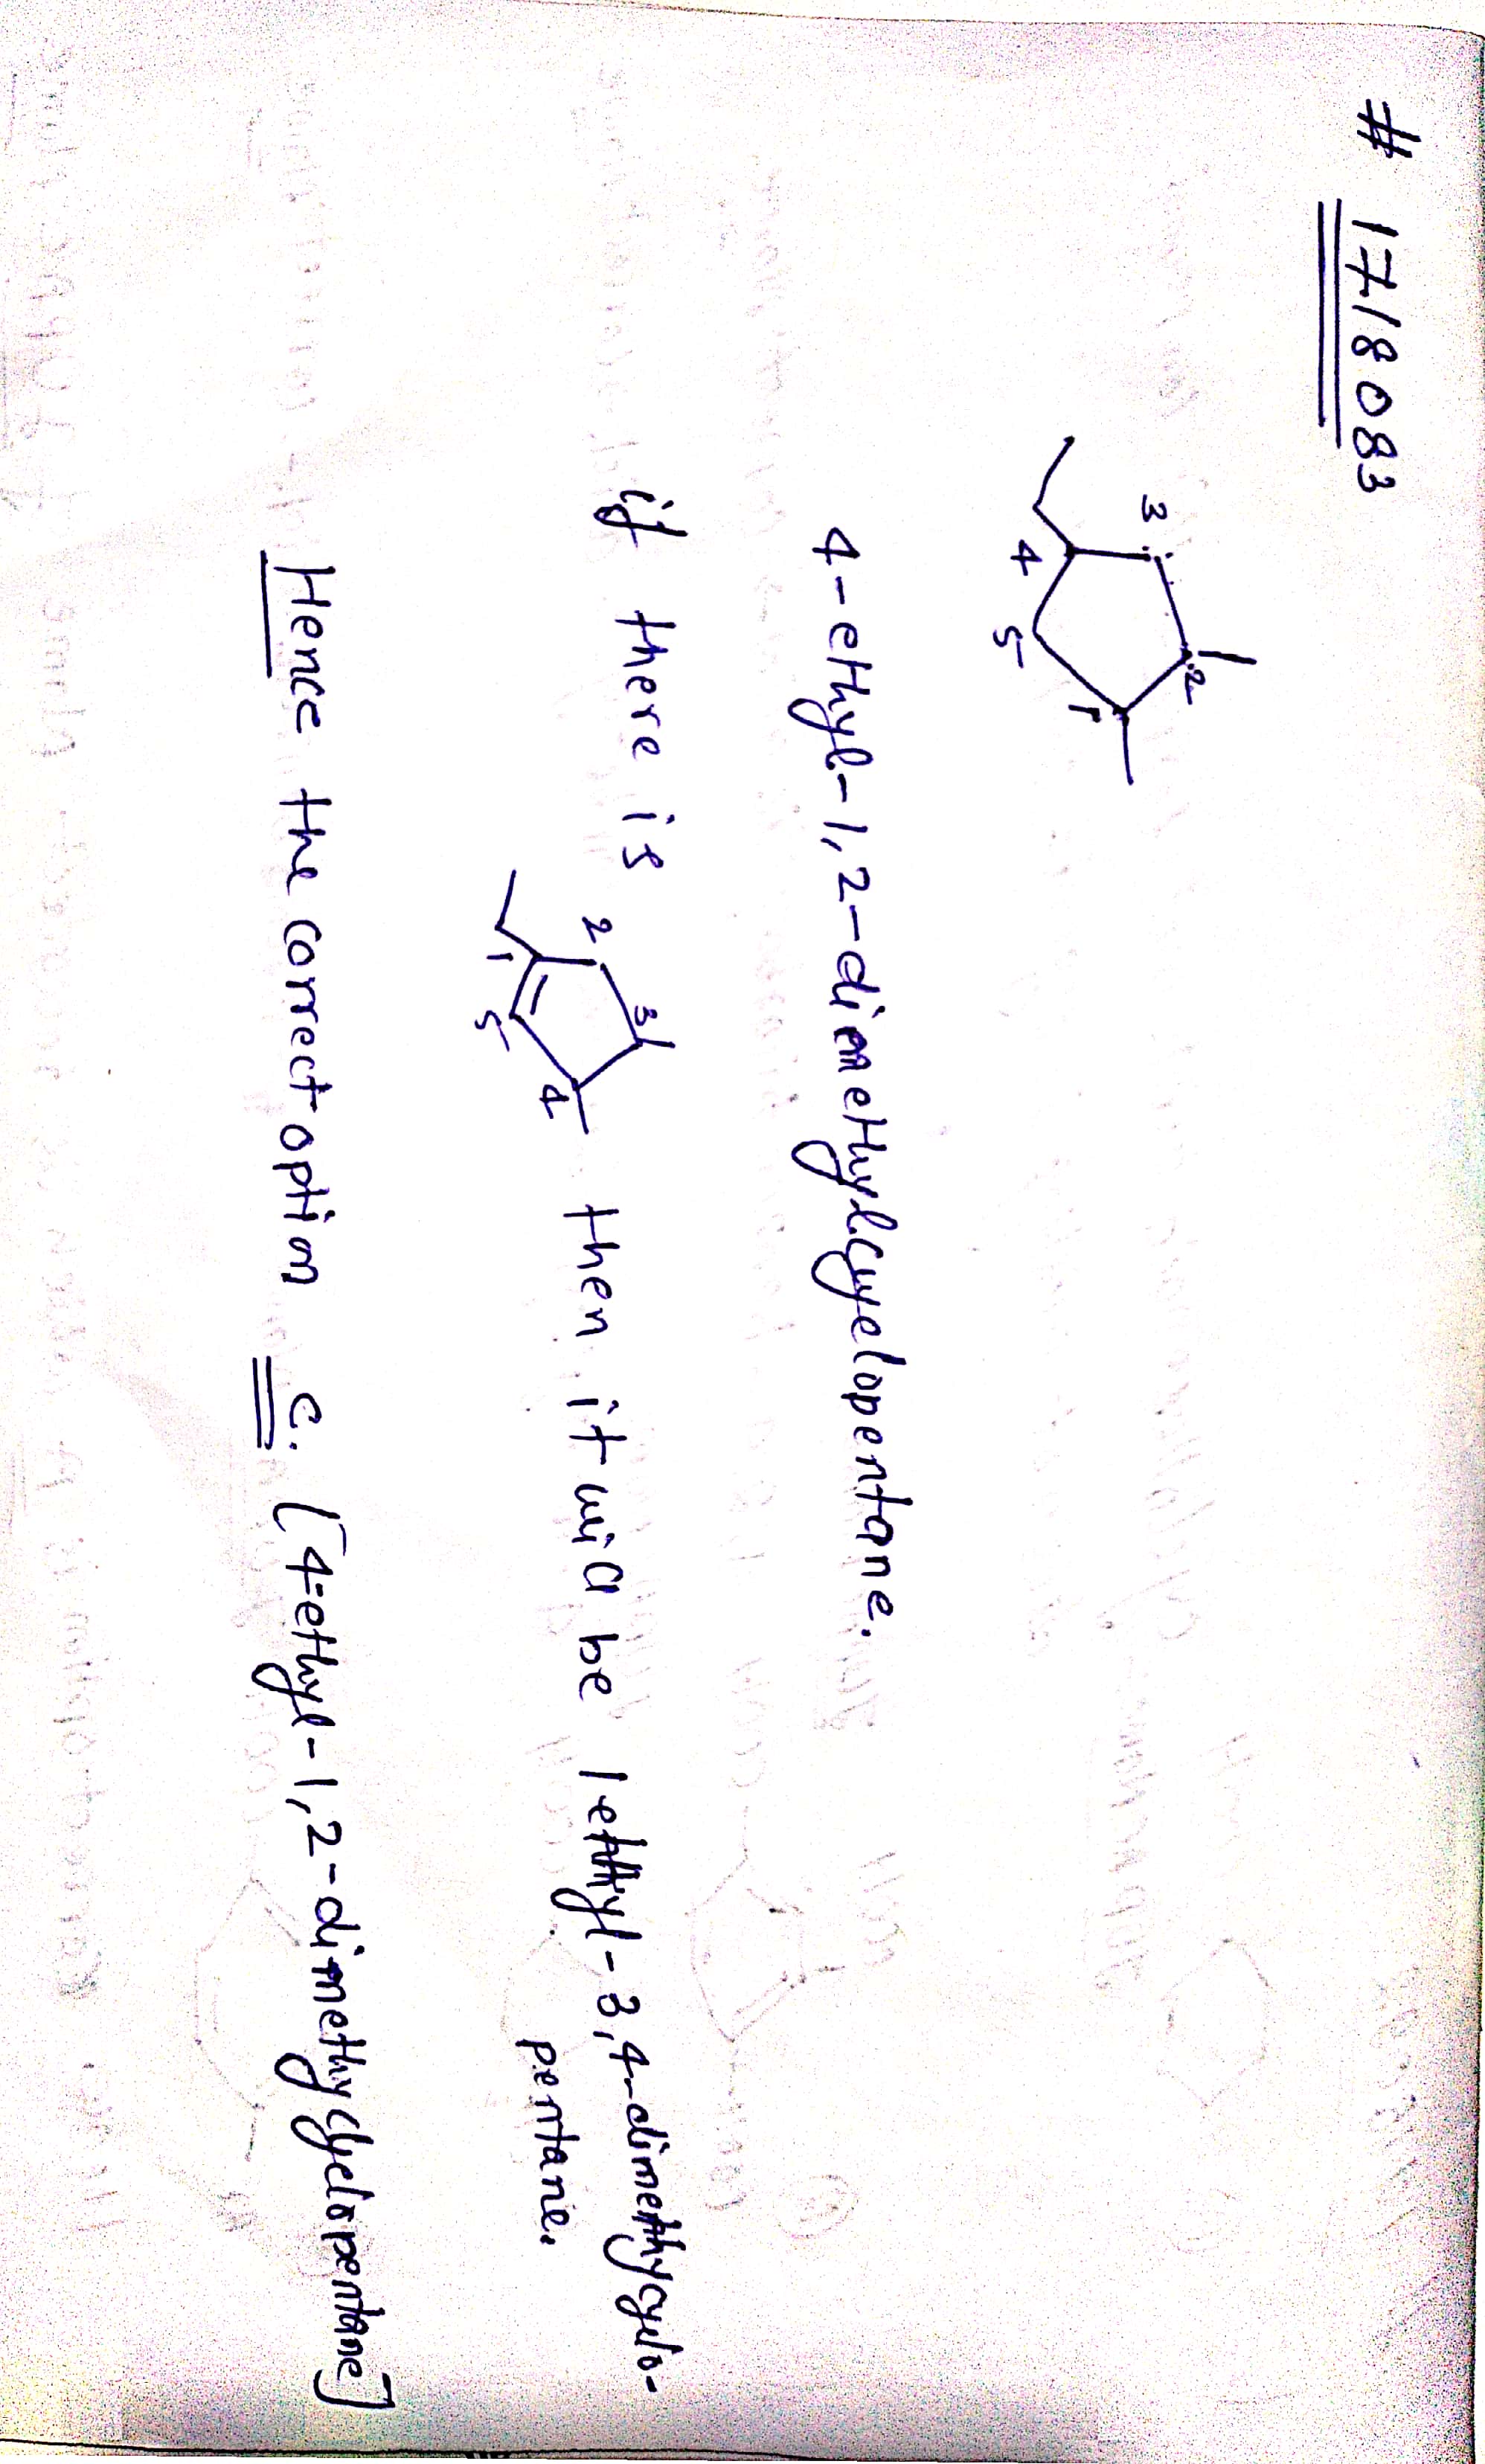 # 1718083
3
2
4
5
1
4-ethyl-1,2-dimethylcyclopentane.
if there is
2
3
1
5
4
then it will be 1 ethyl-3,4-dimethycyclo-
pentane.
Hence the correct option c. [4-ethyl-1,2-dimethycyclopentane]